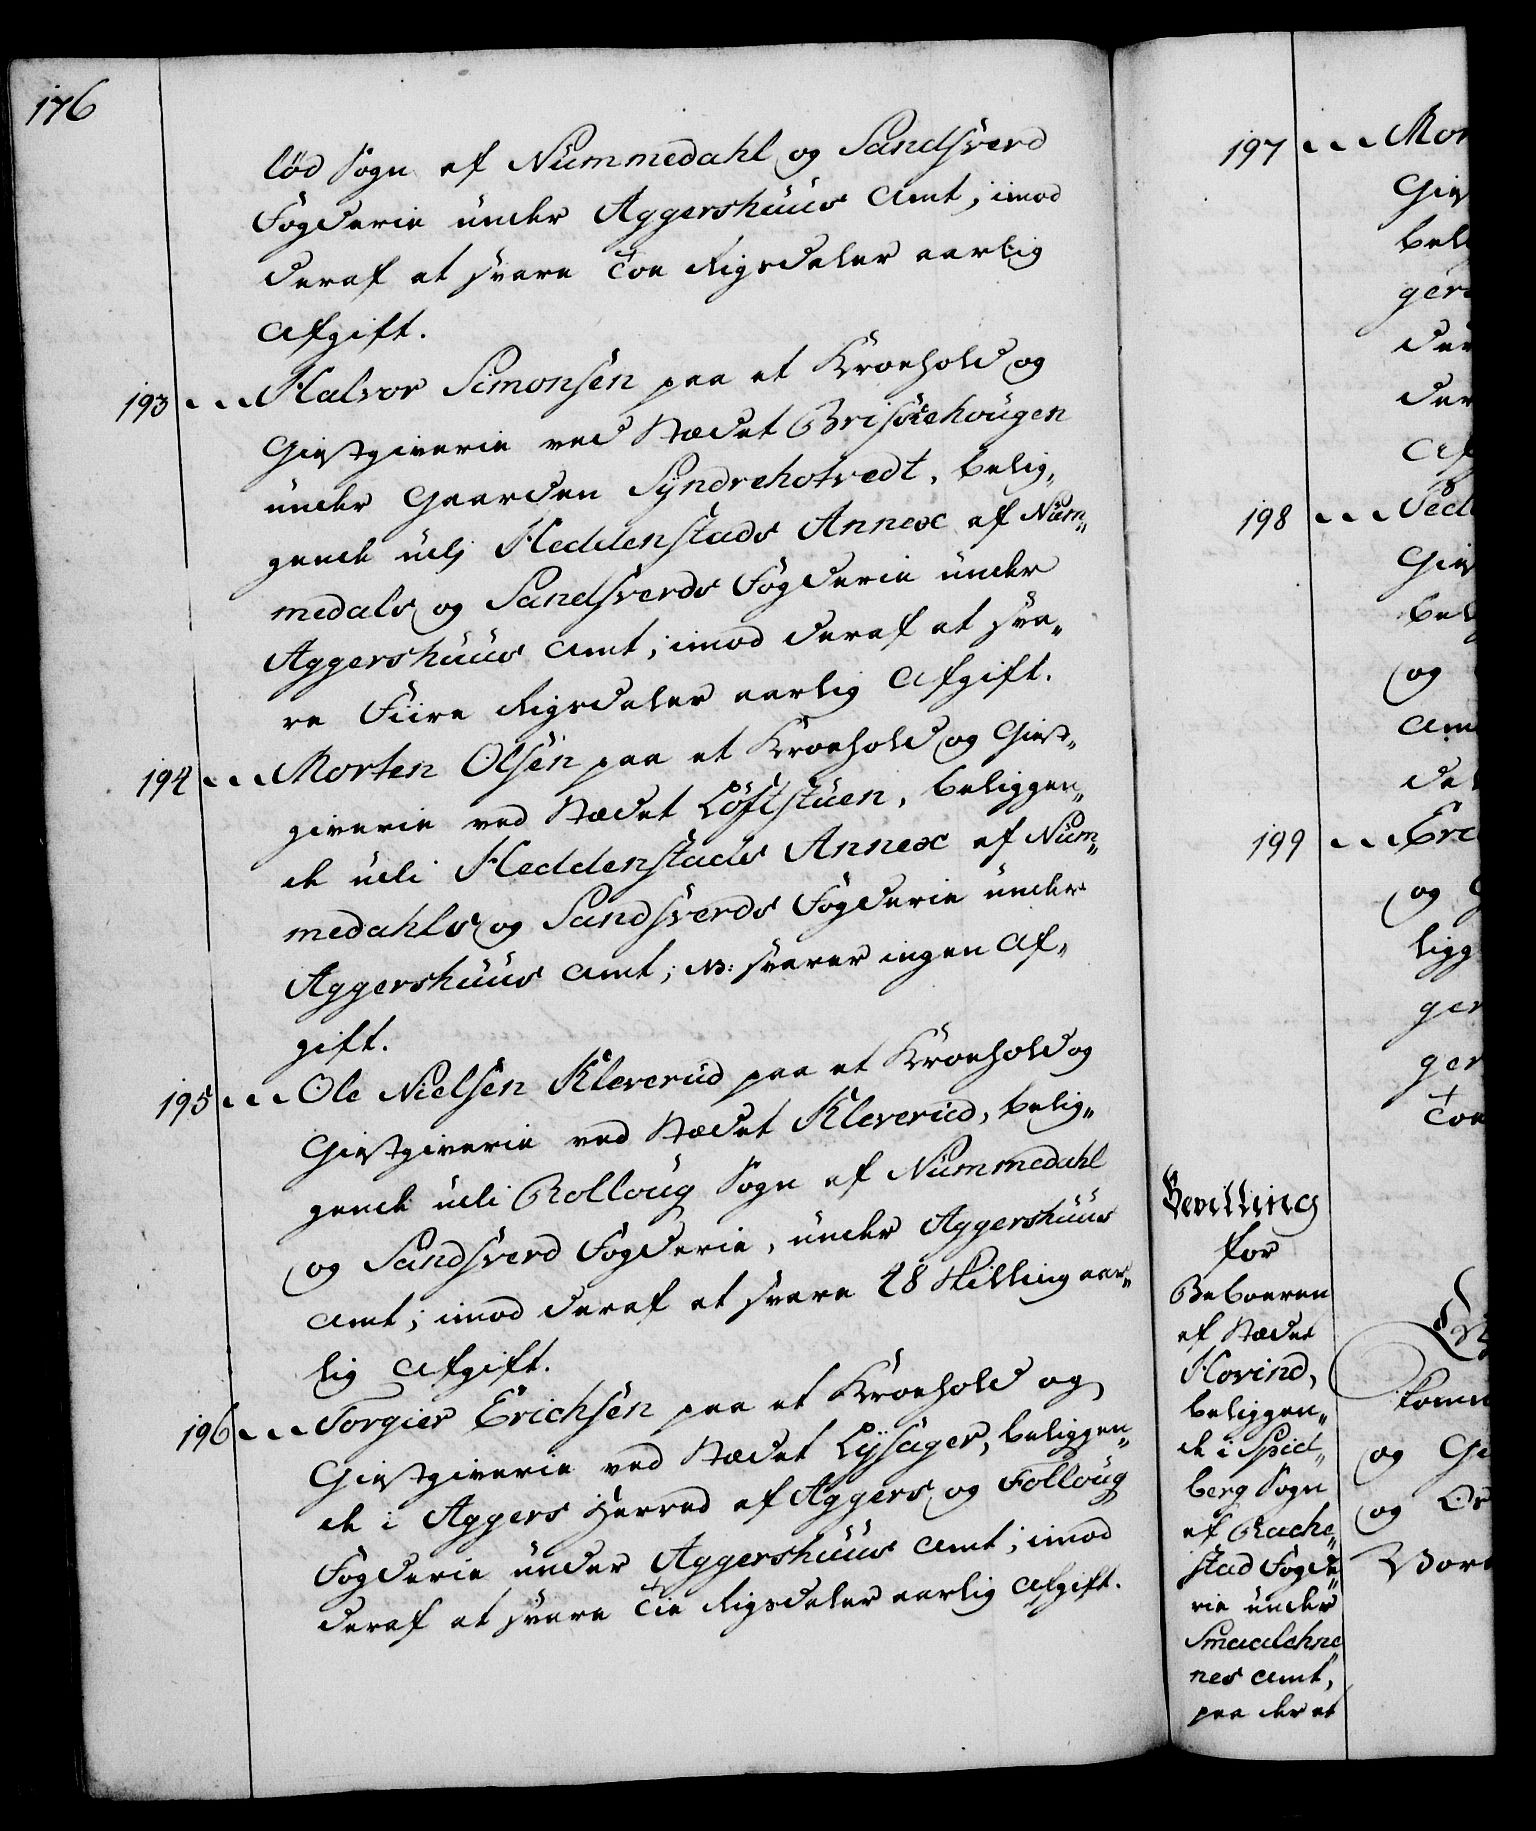 176
lød Sogn af Nummedahl og Sandsverd
Fogderie under Aggershuus Amt, imod
deraf at svare Toe Rigsdaler aarlig
Afgift.
193 Halvor Simonsen paa et Kroehold og
Giestgiverie ved Stædet
under Gaarden Syndrehotvedt, belig-
gende udj Heddenstads Annex af Num-
medals og Sandsverds Fogderie under
Aggershuus Amt; imod deraf at sva-
re Fiire Rigsdaler aarlig Afgift.
194 Morten Olsen paa et Kroehold og Giest-
giverie ved Stædet Løftstuen, beliggen-
de udi Heddenstads Annex af Num-
medahls og Sandsverds Fogderie under
Aggershuus Amt; NB: svarer ingen Af-
gift.
195 Ole Nielsen Kleverud paa et Kroehold og
Giestgiverie ved Stædet Kleverud, belig-
gende udi Rolloug Sogn af Nummedahl
og Sandsverd Fogderie, under Aggershuus
Amt; imod deraf at svare 48 Skilling aar-
lig Afgift.
196 Torgier Erichsen paa et Kroehold og
Giestgiverie ved Stædet Lysager, beliggen-
de i Aggers Herred af Aggers og Folloug
Fogderie under Aggershuus Amt; imod
deraf at svare Tie Rigsdaler aarlig Afgift.
197 Mor
Gies
bel
ger
der
Af
198 Ped
Gies
bel
og
Am
de
199 Eric
og G
ligg
ger
ger
Toe
Bevilling
for
Beboeren
af Stædet
Hovind,
beliggen-
de i Spid-
berg Sogn
af Rache-
stad Fogde-
rie under
Smaalehne-
nes Amt,
paa der at
og Gi
og
Vor